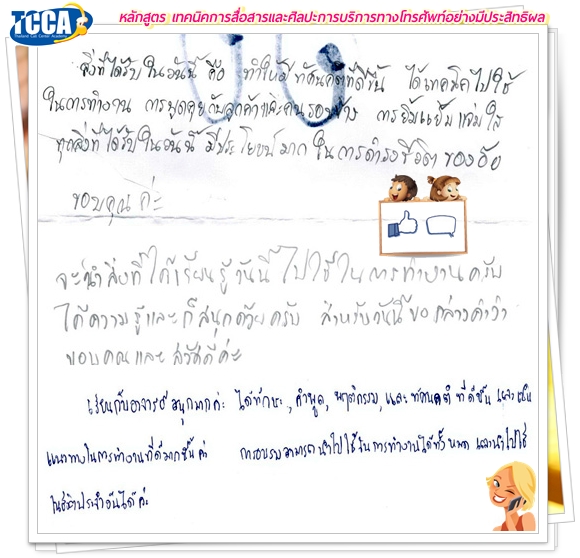 TCCA
Thailand Call Center Academy
หลักสูตร เทคนิคการสื่อสารและศิลปะการบริการทางโทรศัพท์อย่างมีประสิทธิผล
สิ่งที่ได้รับในวันนี้ คือ ทำให้มีทัศนคติที่ดีขึ้น ได้เทคนิคไปใช้
ในการทำงาน การพูดคุยกับลูกค้าและคนรอบข้าง การยิ้มแย้มแจ่มใส
ทุกสิ่งที่ได้รับในวันนี้ มีประโยชน์มาก ในการดำรงชีวิต ของ
ขอบคุณ ค่ะ
จะนำสิ่งที่ได้เรียนรู้วันนี้ ไปใช้ในการทำงานครับ
ได้ความรู้และก็สนุกด้วยครับ สำหรับวันนี้ขอกล่าวคำว่า
ขอบคุณและสวัสดีค่ะ
เรียนกับอาจารย์สนุกมากค่ะ ได้ทักษะ, คำพูด, พฤติกรรม, และทัศนคติ ที่ดีขึ้น และ
แนวทางในการทำงานที่ดีมากขึ้นค่ะ การอบรมสามารถนำไปใช้ในการทำงานได้ทั้งหมด และนำไปใช้
ในชีวิตประจำวันได้ค่ะ